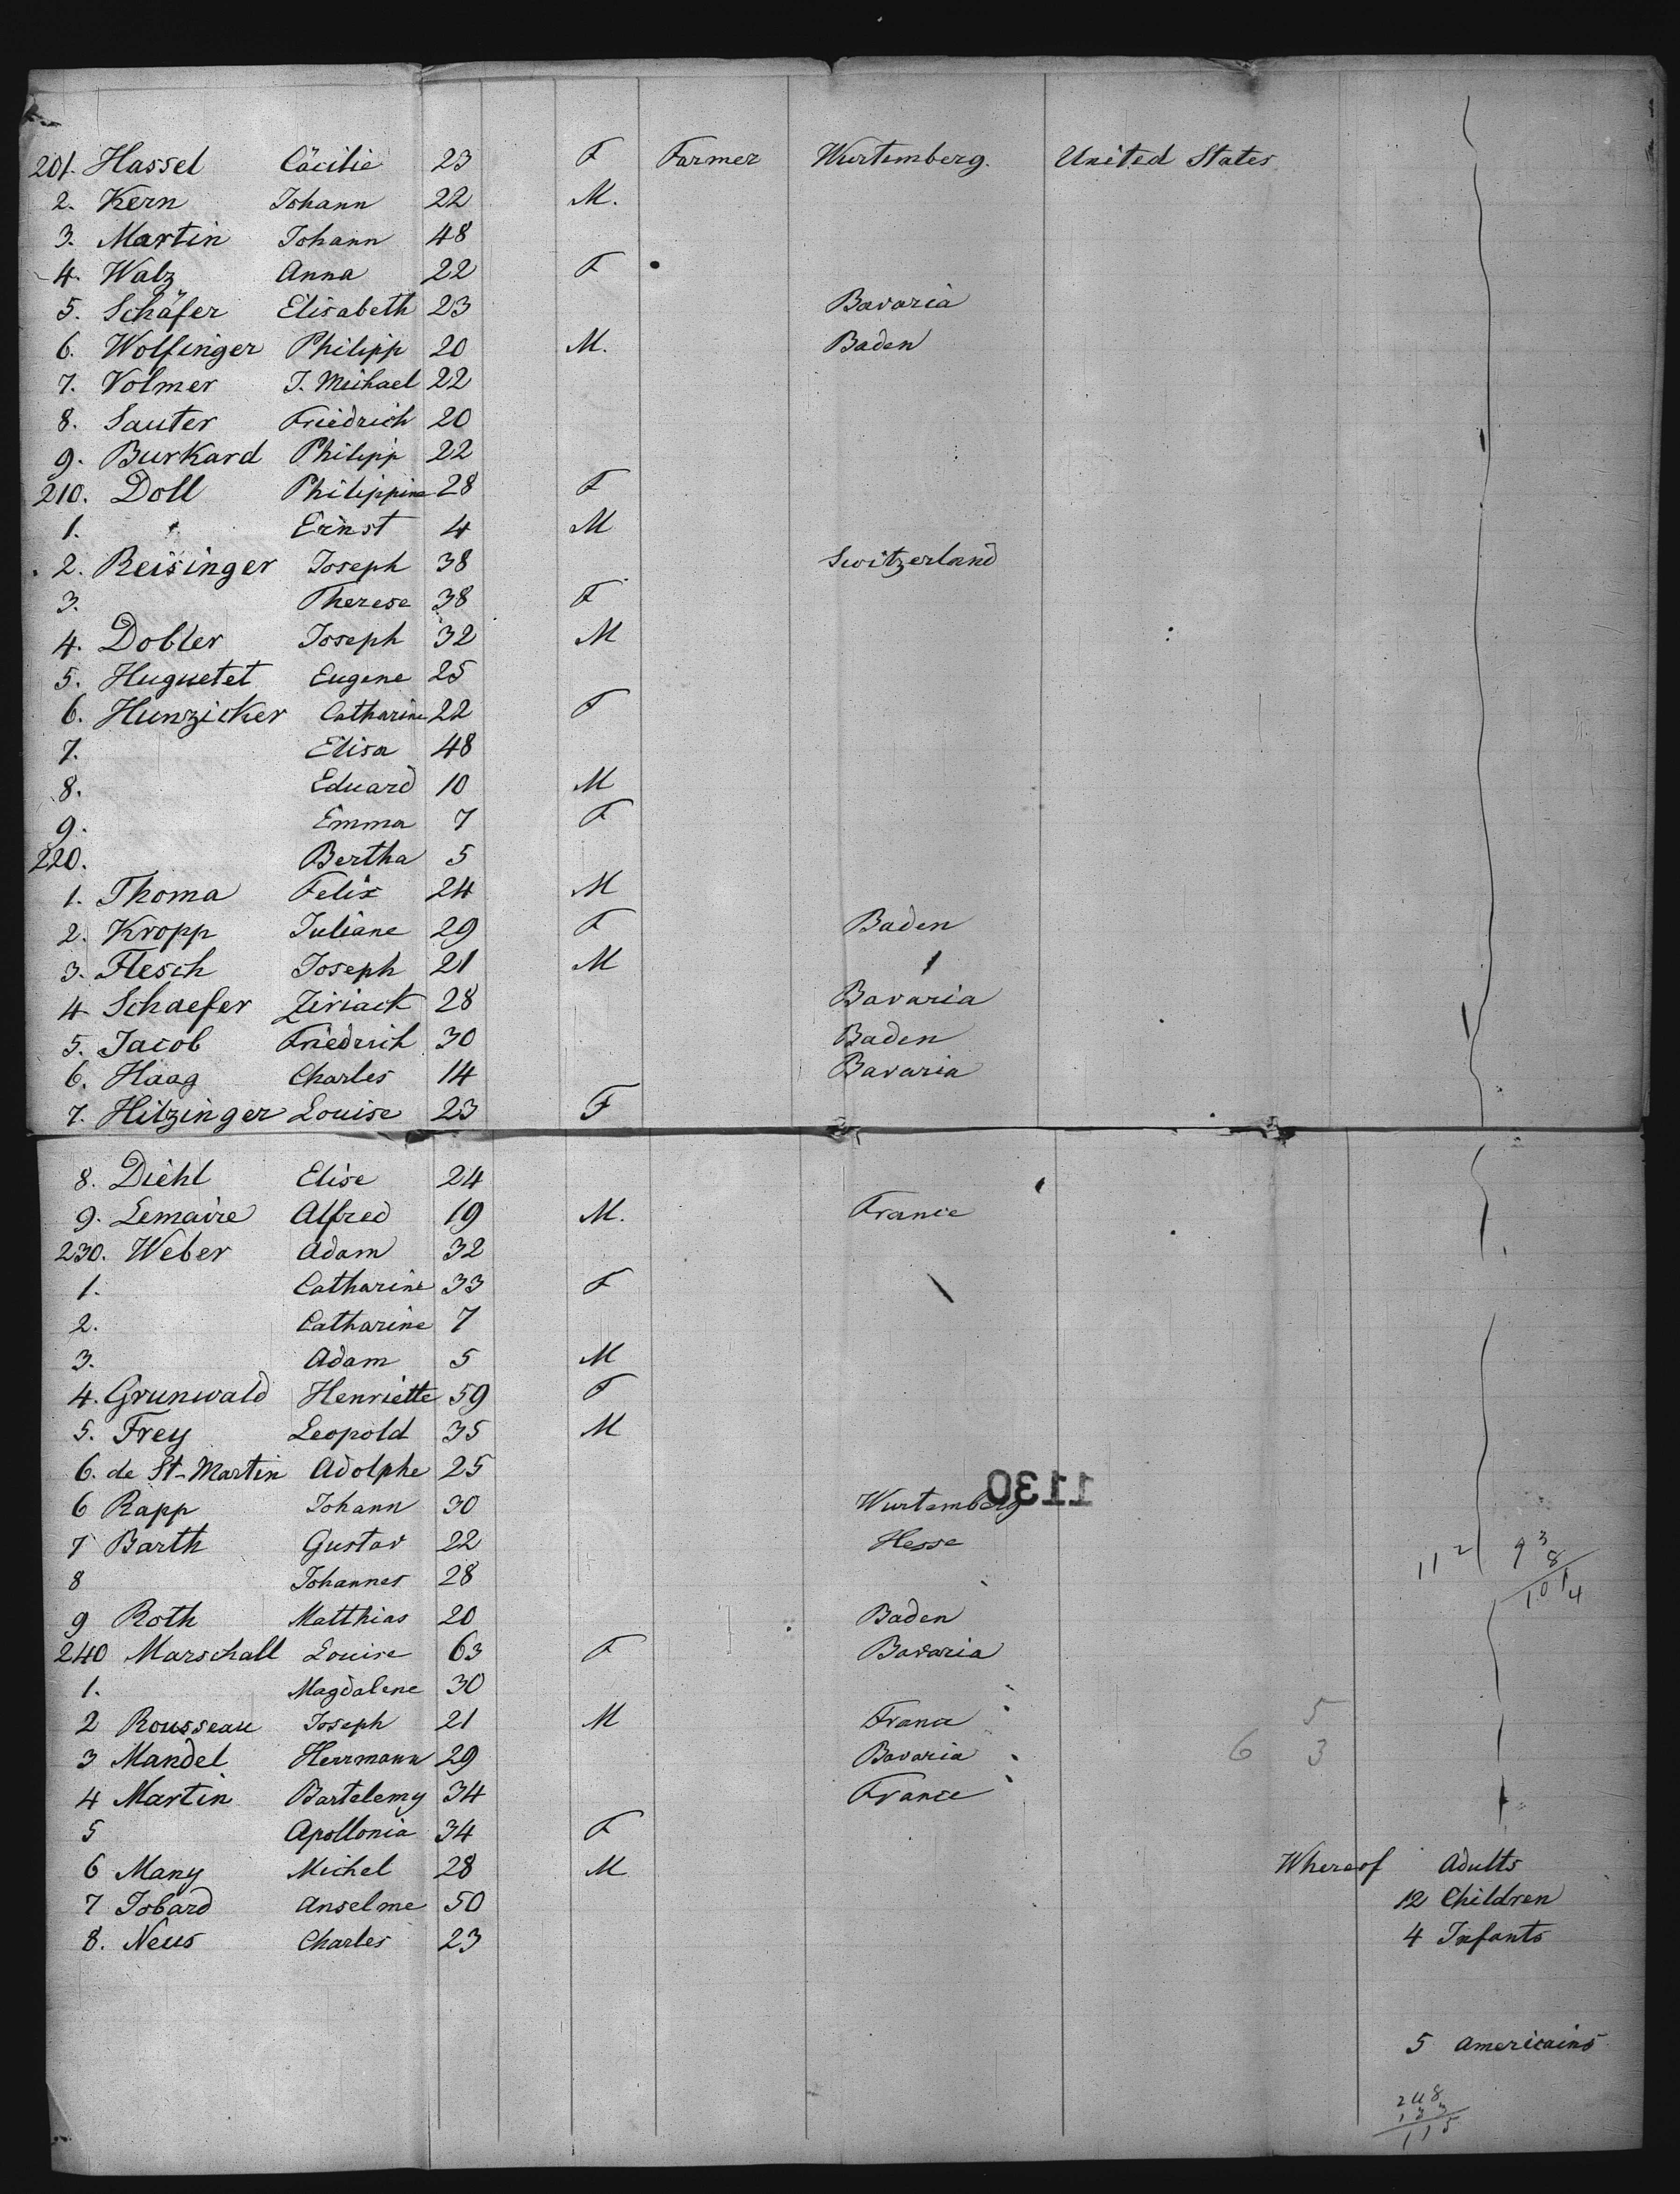 201. Hassel Cäcilie 23 F Farmer Wurtemberg. United States
2. Kern Johann 22 M.
3. Martin Johann 48
4. Walz Anna 22 F
5. Schäfer Elisabeth 23 Bavaria
6. Wolfinger Philipp 20 M. Baden
7. Volmer J. Michael 22
8. Sauter Friedrich 20
9. Burkard Philipp 22
210. Doll Philippine 28 F
1. Ernst 4 M
2. Reisinger Joseph 38 Switzerland
3. Therese 38 F
4. Dobler Joseph 32 M
5. Huguetet Eugene 25
6. Hunzicker Catharine 22 F
7. Elisa 48
8. Eduard 10 M
9. Emma 7 F
220. Bertha 5
1. Thoma Felix 24 M
2. Kropp Juliane 29 F Baden
3. Flesch Joseph 21 M
4 Schaefer Ziriack 28 Bavaria
5. Jacob Friedrich 30 Baden
6. Haag Charles 14 Bavaria
7. Hitzinger Louise 23 F
8. Diehl Elise 24
9. Lemaire Alfred 19 M. France
230. Weber Adam 32
1. Catharine 33 F
2. Catharine 7
3. Adam 5 M
4. Grunwald Henriette 59 F
5. Frey Leopold 35 M
6. de St-Martin Adolphe 25
1130
6 Rapp Johann 30 Wurtemberg
7 Barth Gustav 22 Hesse
112 93
8
1014
8 Johannes 28
9 Roth Matthias 20 Baden
240 Marschall Louise 63 F Bavaria
1. Magdalene 30
2 Rousseau Joseph 21 M France 5
3 Mandel Herrmann 29 Bavaria 6 3
4 Martin Bartelemy 34 France
5 Apollonia 34 F
6 Many Michel 28 M Whereof Adults
7 Jobard Anselme 50 12 Children
8. Neus Charles 23 4 Infants
5 Americains
248
133
115